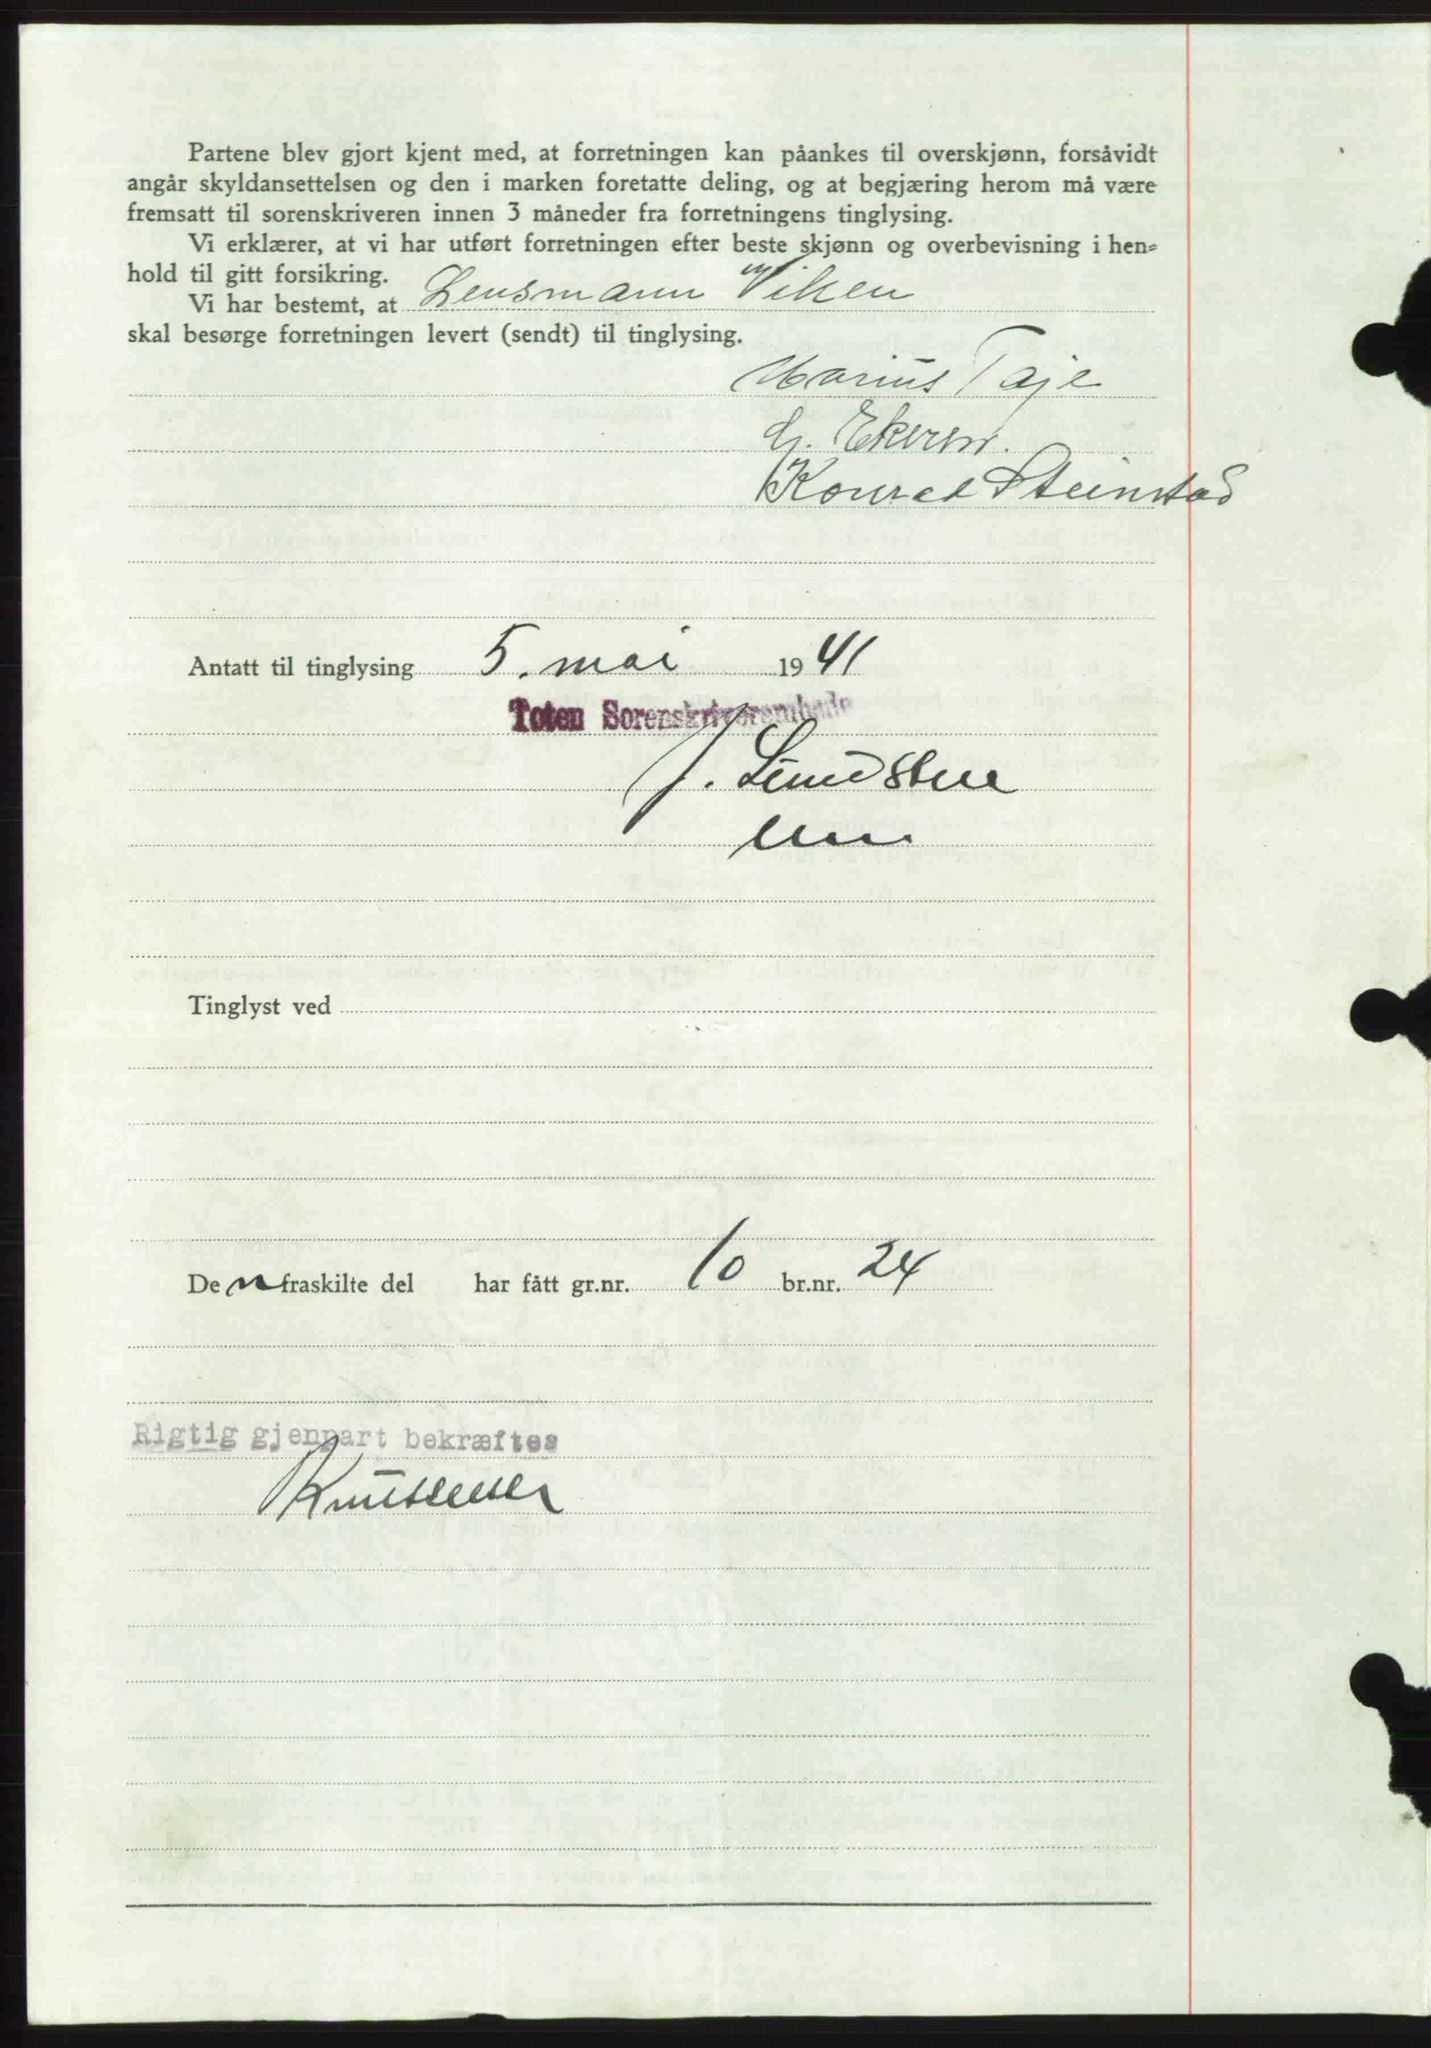 Partene blev gjort kjent med, at forretningen kan påankes til overskjønn, forsåvidt
angår skyldansettelsen og den i marken foretatte deling, og at begjæring herom må være
fremsatt til sorenskriveren innen 3 måneder fra forretningens tinglysing.
Vi erklærer, at vi har utført forretningen efter beste skjønn og overbevisning i hen-
hold til gitt forsikring.
Vi har bestemt, at Lensmann Viken
skal besørge forretningen levert (sendt) til tinglysing.
Marius Taje
G. Ekern.
Konrad Steinstad
Antatt til tinglysing 5. mai 1941
Toten Sorenskriverembede
J. Lundstue
Tinglyst ved
Den fraskilte del har fått gr.nr. 10 br.nr. 24
Rigtig gjenpart bekræftes
Knutsen